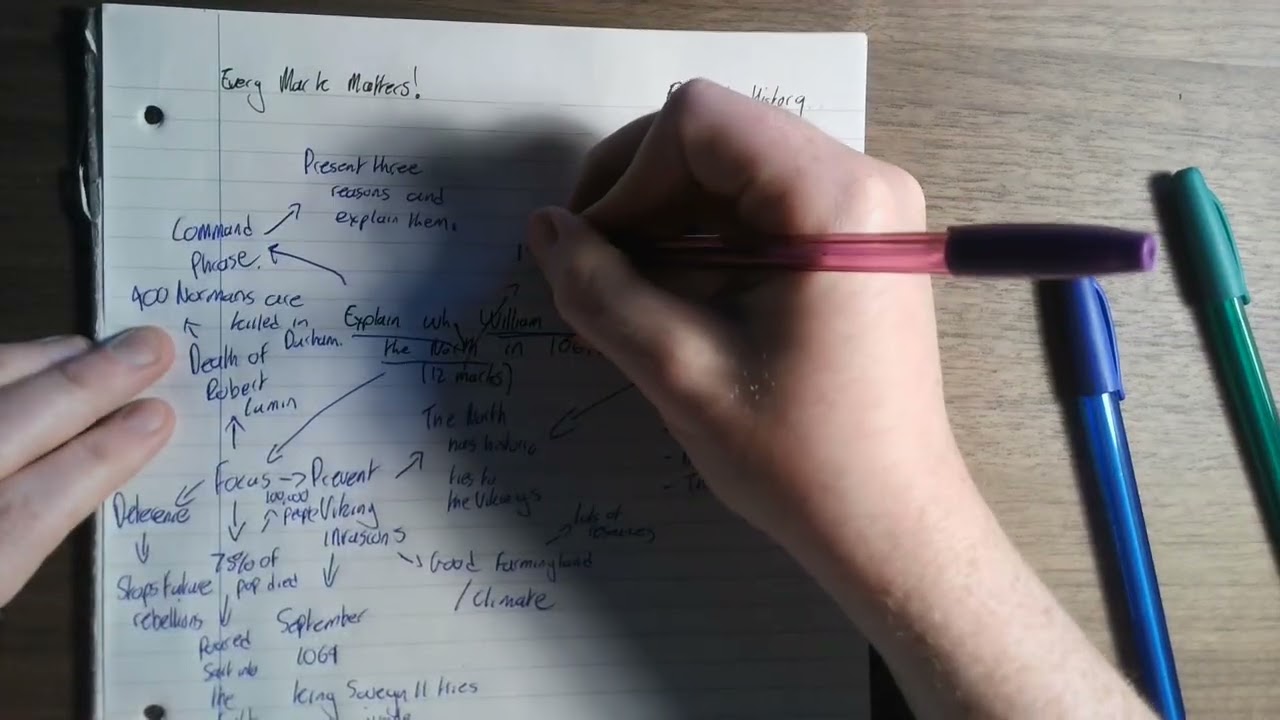 Every Mark Matters!
History
Present three
reasons and
explain them.
Command
Phrase.
400 Normans are
killed in
Durham.
Explain why William
the North in 106
(12 marks)
Death of
Robert
Cumin
The North
has historic
ties to
the Vikings
Focus -> Prevent
100,000
people Viking
invasions
Deterence
75% of
pop died
lots of
resources
Good Farming land
/Climate
Stops future
rebellions
September
1069
Poured
Salt into
the
King Sweyn II tries